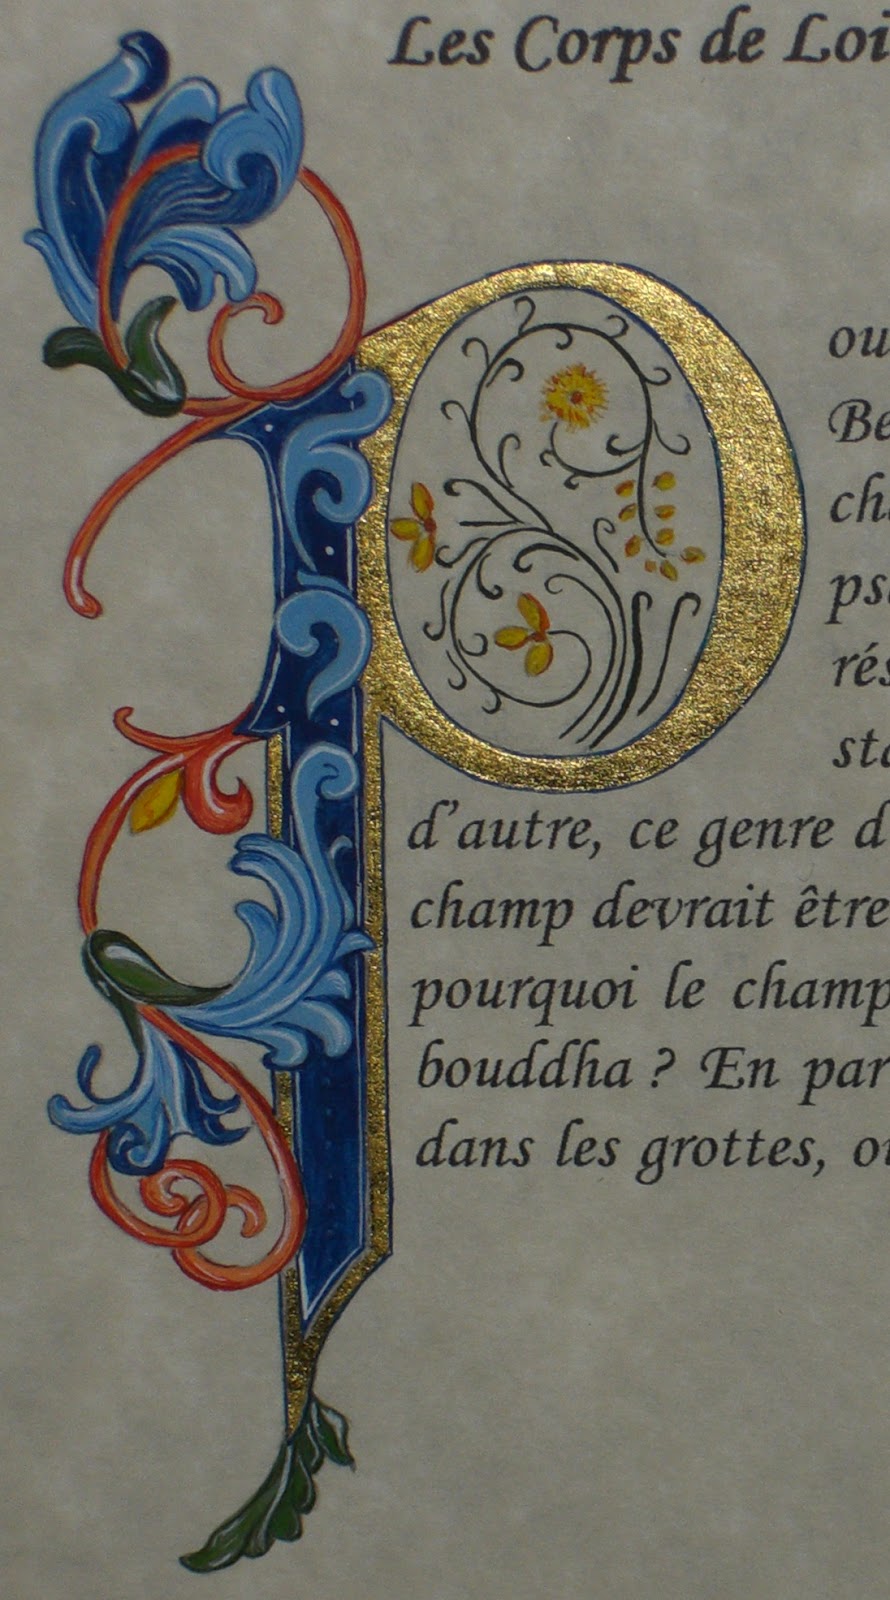 Les Corps de Loi
P
ou
Be
ch
psa
rés
sta
d'autre, ce genre d
champ devrait être
pourquoi le champ
bouddha ? En par
dans les grottes, ou